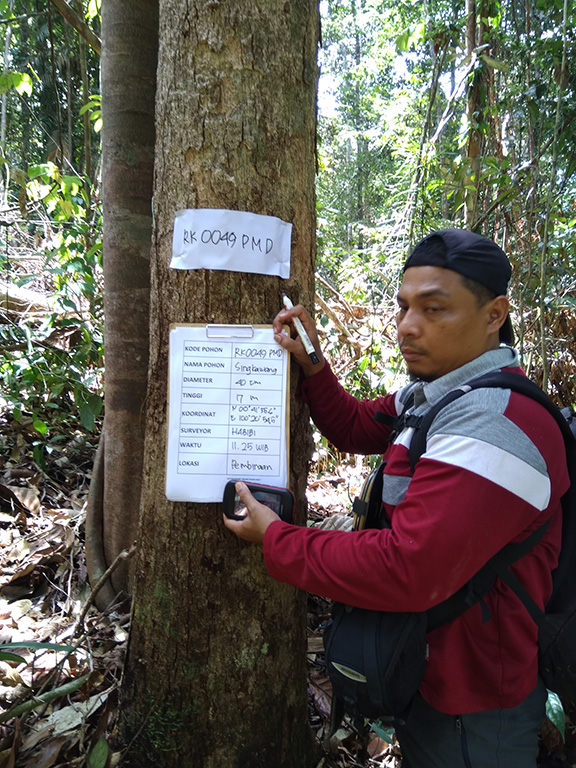 RK 0049 PMD
KODE POHON RK0049 PMD
NAMA POHON Singkawang
DIAMETER 40 cm
TINGGI 17 m
KOORDINAT N 00°41'
E 100°20'
SURVEYOR HABIBI
WAKTU 11.25 WIB
LOKASI Pembinaan